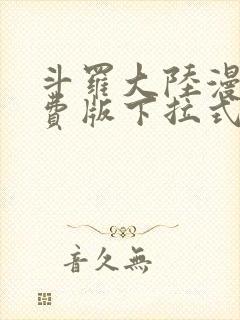 斗羅大陸漫
費版下拉式
音久無